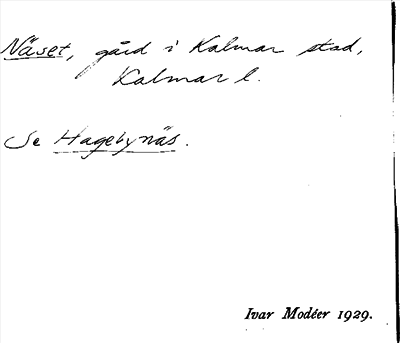 Näset, gård i Kalmar stad,
Kalmar l.
Se Hagebynäs.
Ivar Modéer 1929.